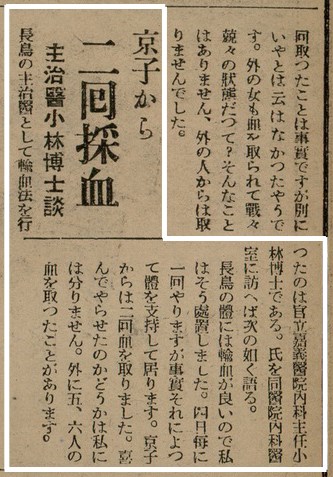 回取つたことは事實ですが別に
いやとは云はなかつたやうで
す。外の女も血を取られて戰々
兢々の狀態だつて？そんなこと
はありません、外の人からは取
りませんでした。
京子から
二回採血
主治醫小林博士談
長鳥の主治醫として輸血法を行
つたのは官立嘉義醫院內科主任小
林博士である。氏を同醫院內科醫
室に訪へば次の如く語る。
長鳥の體には輸血が良いので私
はそう處置しました。四日每に
一回やりますが事實それによつ
て體を支持して居ります。京子
からは二回血を取りました。喜
んでやらせたのかどうかは私に
は分りません。外に五、六人の
血を取つたことがあります。